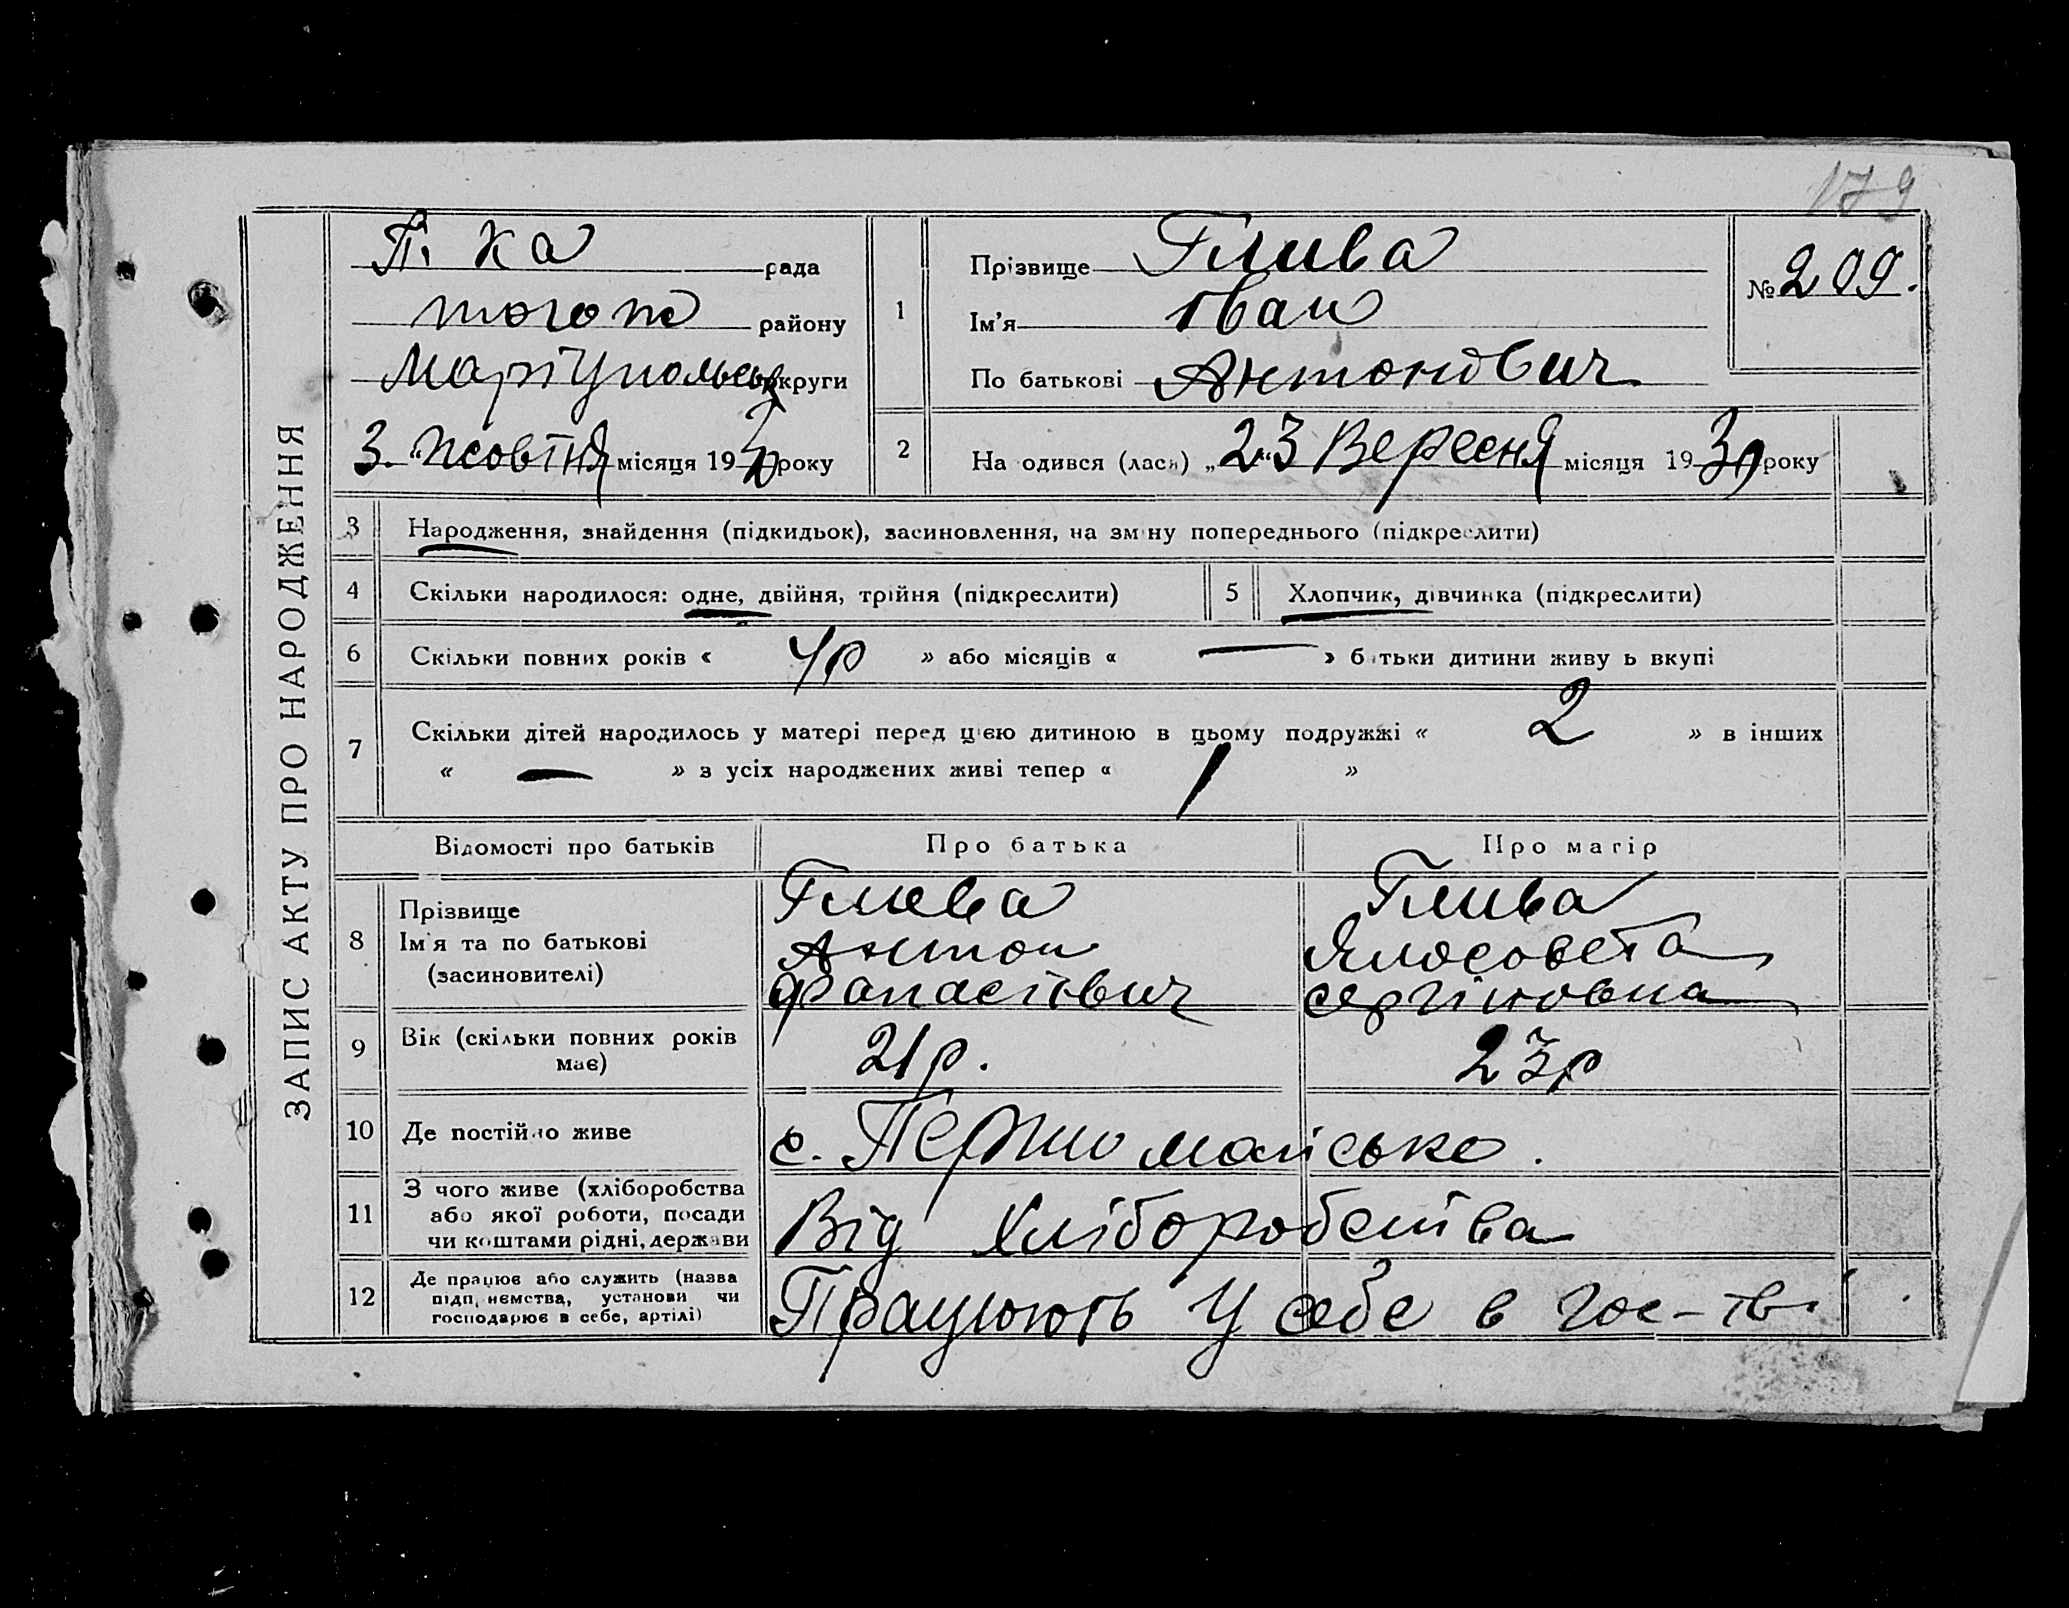 179
ЗАПИС АКТУ ПРО НАРОДЖЕННЯ
П. ка рада
того ж району
Маріупольськ округи
3. Жовтня місяця 1930 року
1
Прізвище Глива
Ім'я Іван
По батькові Антонович
№ 209.
2
Народився (лася) „23 Вересня місяця 1930 року
3 Народження, знайдення (підкидьок), засиновлення, на зміну попереднього (підкреслити)
4 Скільки народилося: одне, двійня, трійня (підкреслити) 5 Хлопчик, дівчинка (підкреслити)
6 Скільки повних років « 4р » або місяців « — » батьки дитини живуть вкупі
7 Скільки дітей народилось у матері перед цією дитиною в цьому подружжі « 2 » в інших
« — » з усіх народжених живі тепер « 1 »
Відомості про батьків Про батька Про матір
8 Прізвище Глива Глива
Ім'я та по батькові Антон Ялосовета
(засиновителі) Фанасієвич Сергіновна
9 Вік (скільки повних років має) 21р. 23р
10 Де постійно живе с. Першомайське.
11 З чого живе (хліборобства
або якої роботи, посади
чи коштами рідні, держави Від Хліборобства
12 Де працює або служить (назва
підприємства, установи чи
господарює в себе, артілі) Працюють у себе в гос-тві